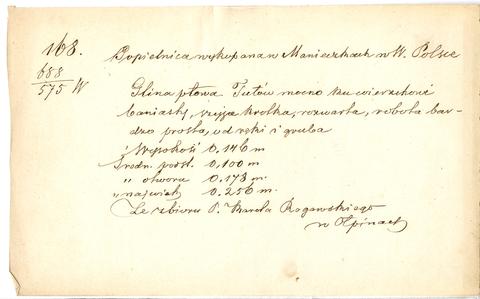 168.
688
575 W
Popielnica wykopana w Manieczkach w W. Polsce
Glina płowa Tułów mocno ku wierzchowi
baniasty, szyja krótka, rozwarta, robota bar-
dzo prosta, od ręki i gruba
Wysokość 0.146 m
Średn. podst. 0,100 m
" otworu 0.173 m.
" najwięk. 0.256 m.
Ze zbioru P. Karola Rogawskiego
w Ołpinach